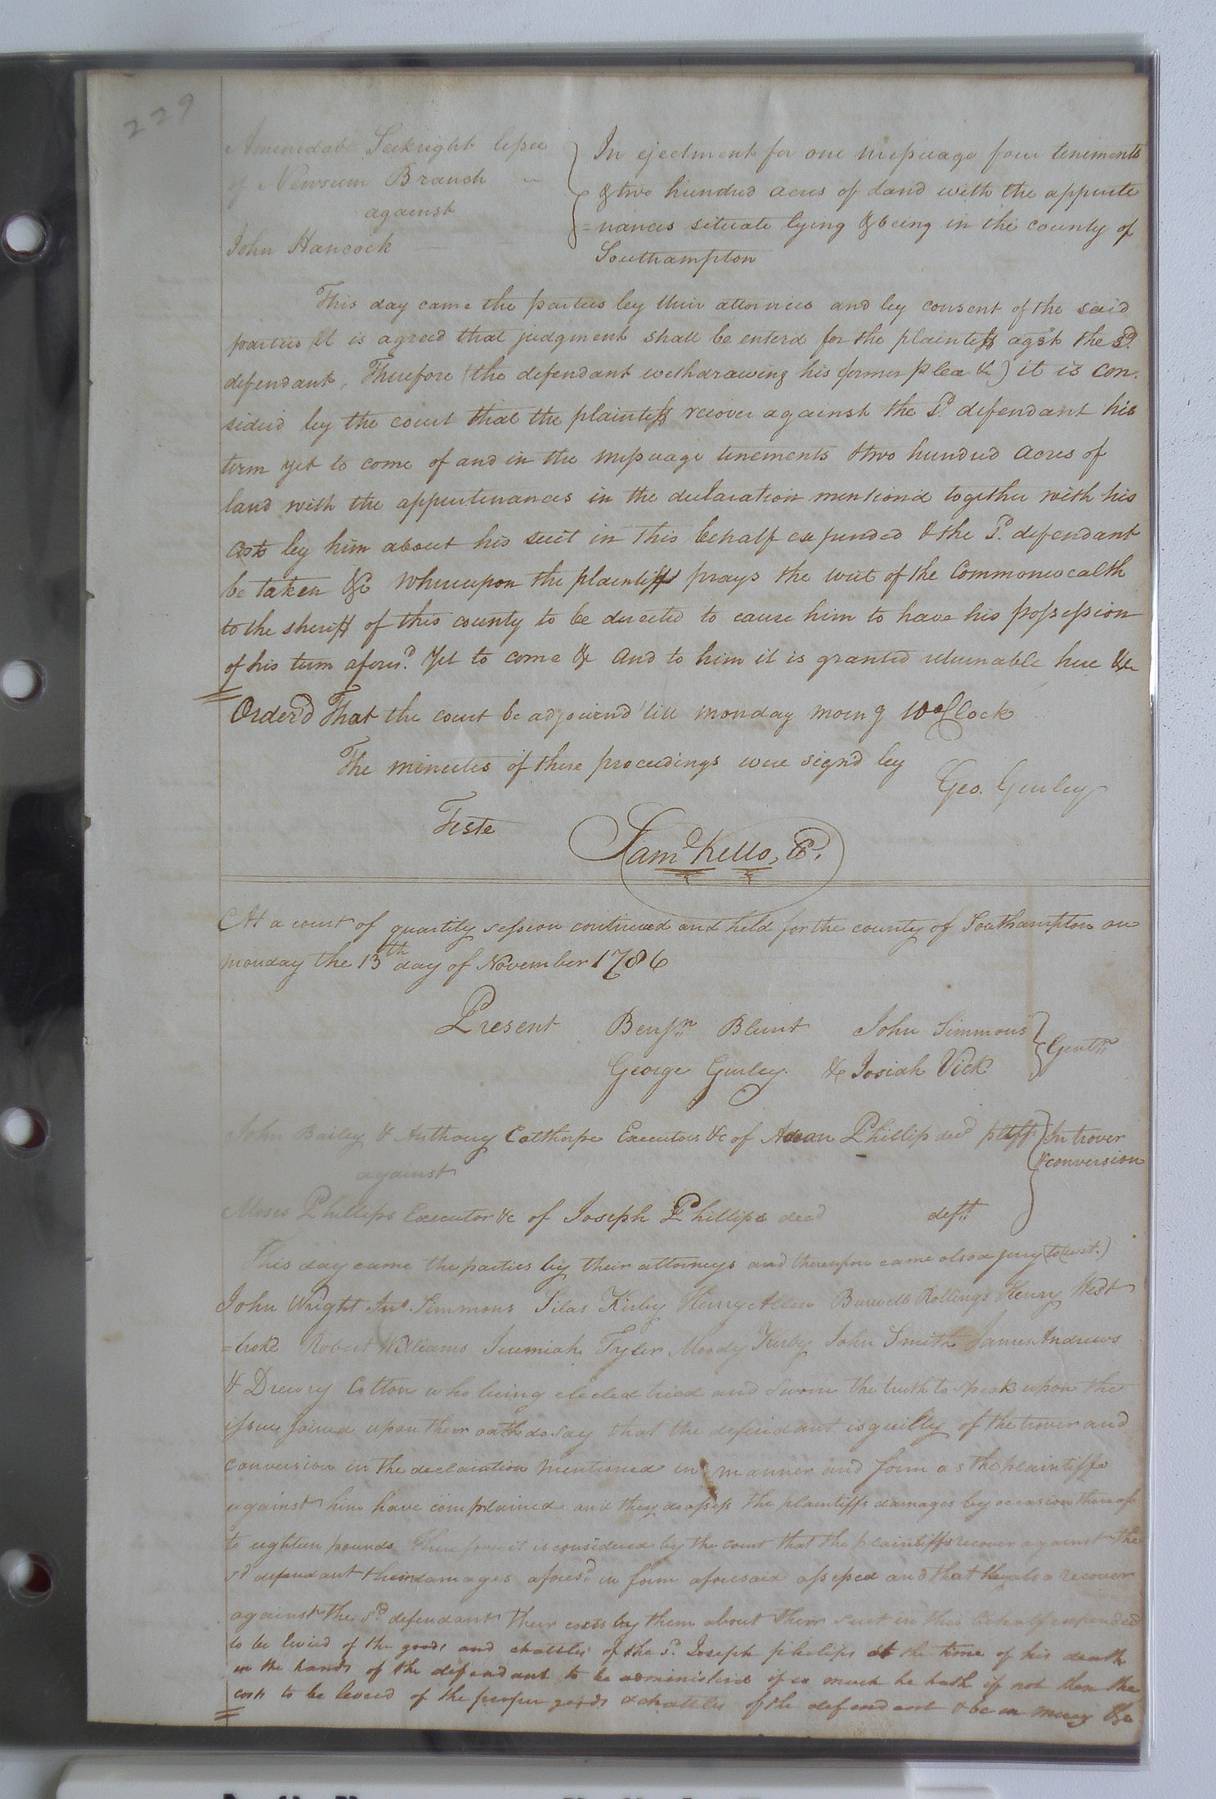 229
Amendable Seekright lessee
of Newsum Branch
against
John Hancock
In ejectment for one messuage four teniments
& two hundred acres of land with the appurte
=nances situate lying & being in the county of
Southampton
This day came the parties by their attornies and by consent of the said
parties It is agreed that judgment shall be enterd for the plaintiff agst the sd.
defendant, Therefore (the defendant withdrawing his former plea &c) it is con.
siderd by the court that the plaintiff recover against the sd. defendant his
term yet to come of and in the messuage tenements & two hundred acres of
land with the appurtenances in the declaration mentiond together with his
costs by him about his suit in this behalf expended & the sd. defendant
be taken &c Whereupon the plaintiff prays the writ of the Commonwealth
to the sheriff of this county to be directed to cause him to have his possession
of his term aforesd. Yet to come &c And to him it is granted returnable here &c
Order'd That the court be adjournd 'till monday morng 10 oClock
The minutes of these proceedings were sign'd by
Geo. Gurley
Teste
Saml Kello, C.
At a court of quartily session continued and held for the county of Southampton on
monday the 13th day of November 1786
Present Benjn Blunt John Simmons
George Gurley & Josiah Vick
Gentn
John Bailey & Anthony Calthorpe Executors &c of Phillip decd pltff
against
Moses Phillips Executor &c of Joseph Phillips decd deft
In trover
& conversion
This day came the parties by their attorneys and thereupon came also a jury (to wit.)
John Wright Simmons Silas Kirby Henry Allen Burwell Rollings Henry West
=broke Robert Williams Jeremiah Tyler Moody Kirby John Smith James Andrews
& Drewry Cotton who being elected tried and sworn the truth to speak upon the
issue joined upon their oath do say that the defendant is guilty of the trover and
conversion in the declaration mentioned in manner and form as the plaintiffs
against him have complained and they do assess the plaintiffs damages by occasion thereof
to eighteen pounds Therefore it is considered by the court that the plaintiffs recover against the
sd defendant their damages aforesd. in form aforesaid assessed and that they also recover
against the sd. defendant their costs by them about their suit in this behalf expended
to be levied of the goods and chattles of the sd. Joseph philips at the time of his death
in the hands of the defendant to be administred if so much he hath if not then the
costs to be levied of the proper goods & chattles of the defendant & be in mercy &c